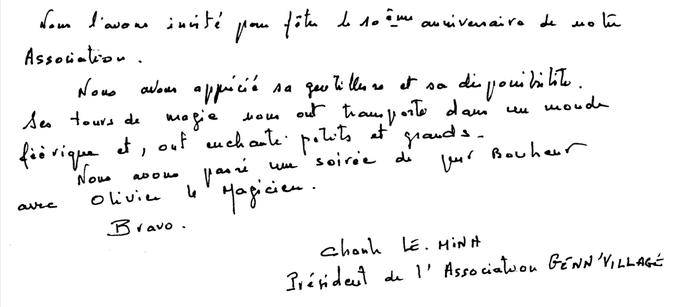 Nous l'avons invité pour fêter le 10ème anniversaire de notre
Association.
Nous avons apprécié sa gentillesse et sa disponibilité.
Ses tours de magie nous ont transporté dans un monde
féérique et, ont enchanté petits et grands.
Nous avons passé une soirée de pur Bonheur
avec Olivier le Magicien.
Bravo.
Chanh LE. MINH
Président de l'Association GENN'VILLAGE